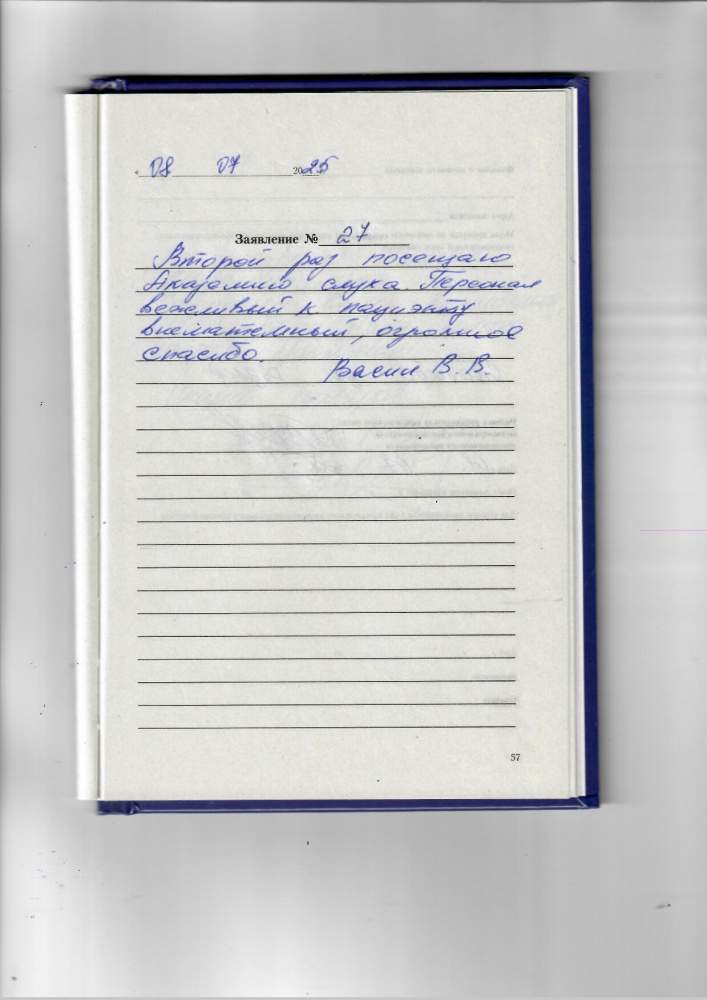 " 08 07 2025
Заявление № 27
Второй раз посещаю
Академию слуха. Персонал
вежливый к пациэнту
внемательный, огромное
спасибо.
В. В.
57